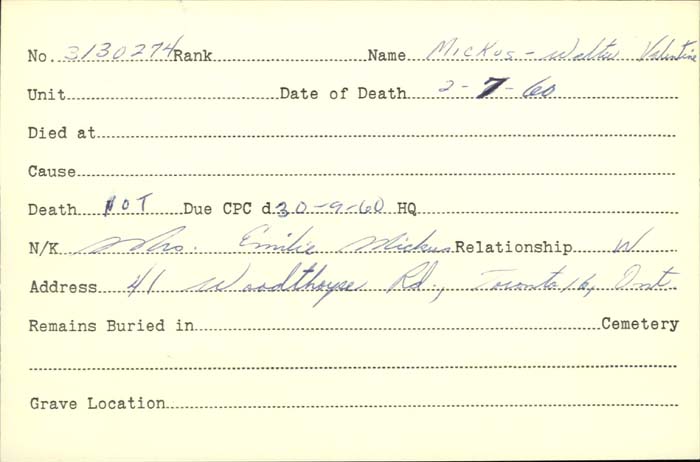 No. 3130274 Rank Name Mickus - Walter Valentine
Unit Date of Death 2-7-60
Died at
Cause
Death NOT Due CPC d. 30-9-60 HQ
N/K Mrs. Emilie Mickus Relationship W
Address 41 Woodthorpe Rd., Toronto 16, Ont.
Remains Buried in Cemetery
Grave Location